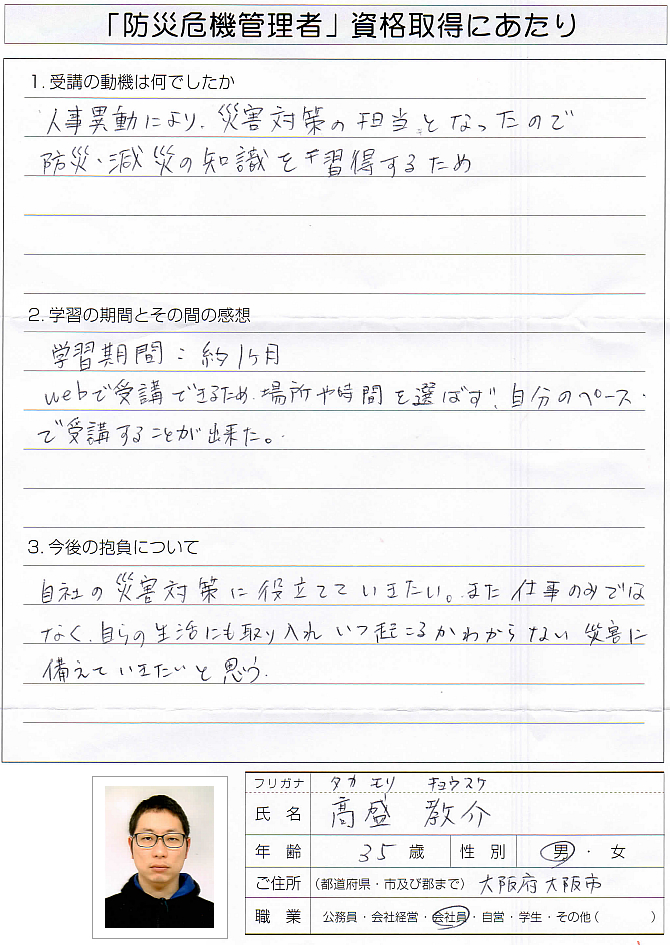 「防災危機管理者」資格取得にあたり
1. 受講の動機は何でしたか
人事異動により、災害対策の担当となったので
防災・減災の知識を習得するため
2. 学習の期間とその間の感想
学習期間：約1ヶ月
webで受講できるため、場所や時間を選ばず、自分のペース
で受講することが出来た。
3. 今後の抱負について
自社の災害対策に役立てていきたい。また仕事のみでは
なく、自らの生活にも取り入れいつ起こるかわからない災害に
備えていきたいと思う。
フリガナ タカモリ キョウスケ
氏名 髙盛 教介
年齢 35歳 性別 男・女
ご住所 (都道府県・市及び郡まで) 大阪府大阪市
職業 公務員・会社経営・会社員・自営・学生・その他( )